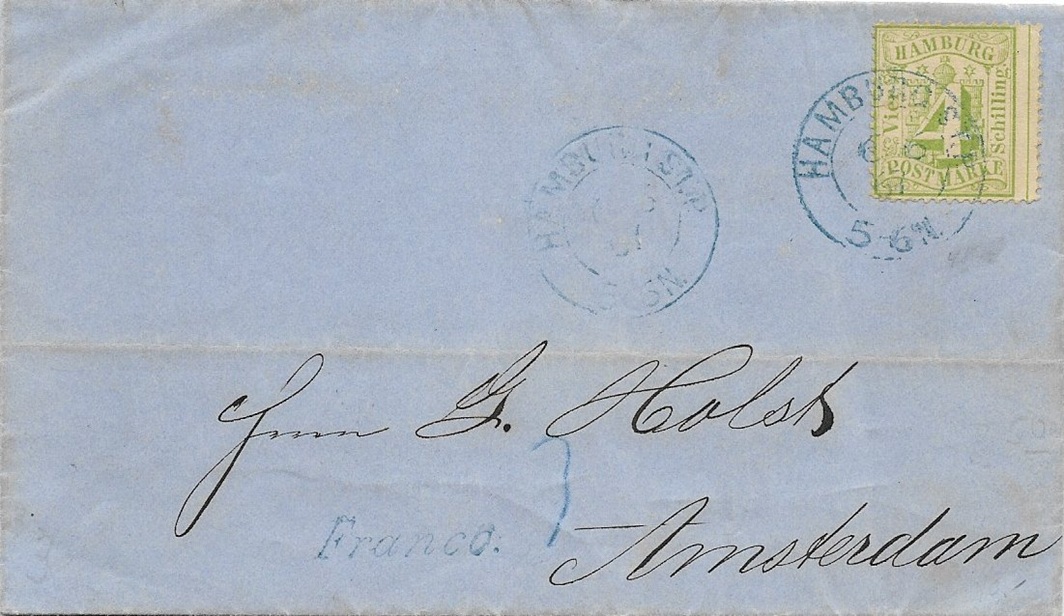 HAMBURG
Vier
4
Schilling
POSTMARKE
HAMBURG ST.P.
6 6
67
5-6N.
HAMBURG ST.P.
67
5-6N.
Herrn G. Holst
Franco.
Amsterdam